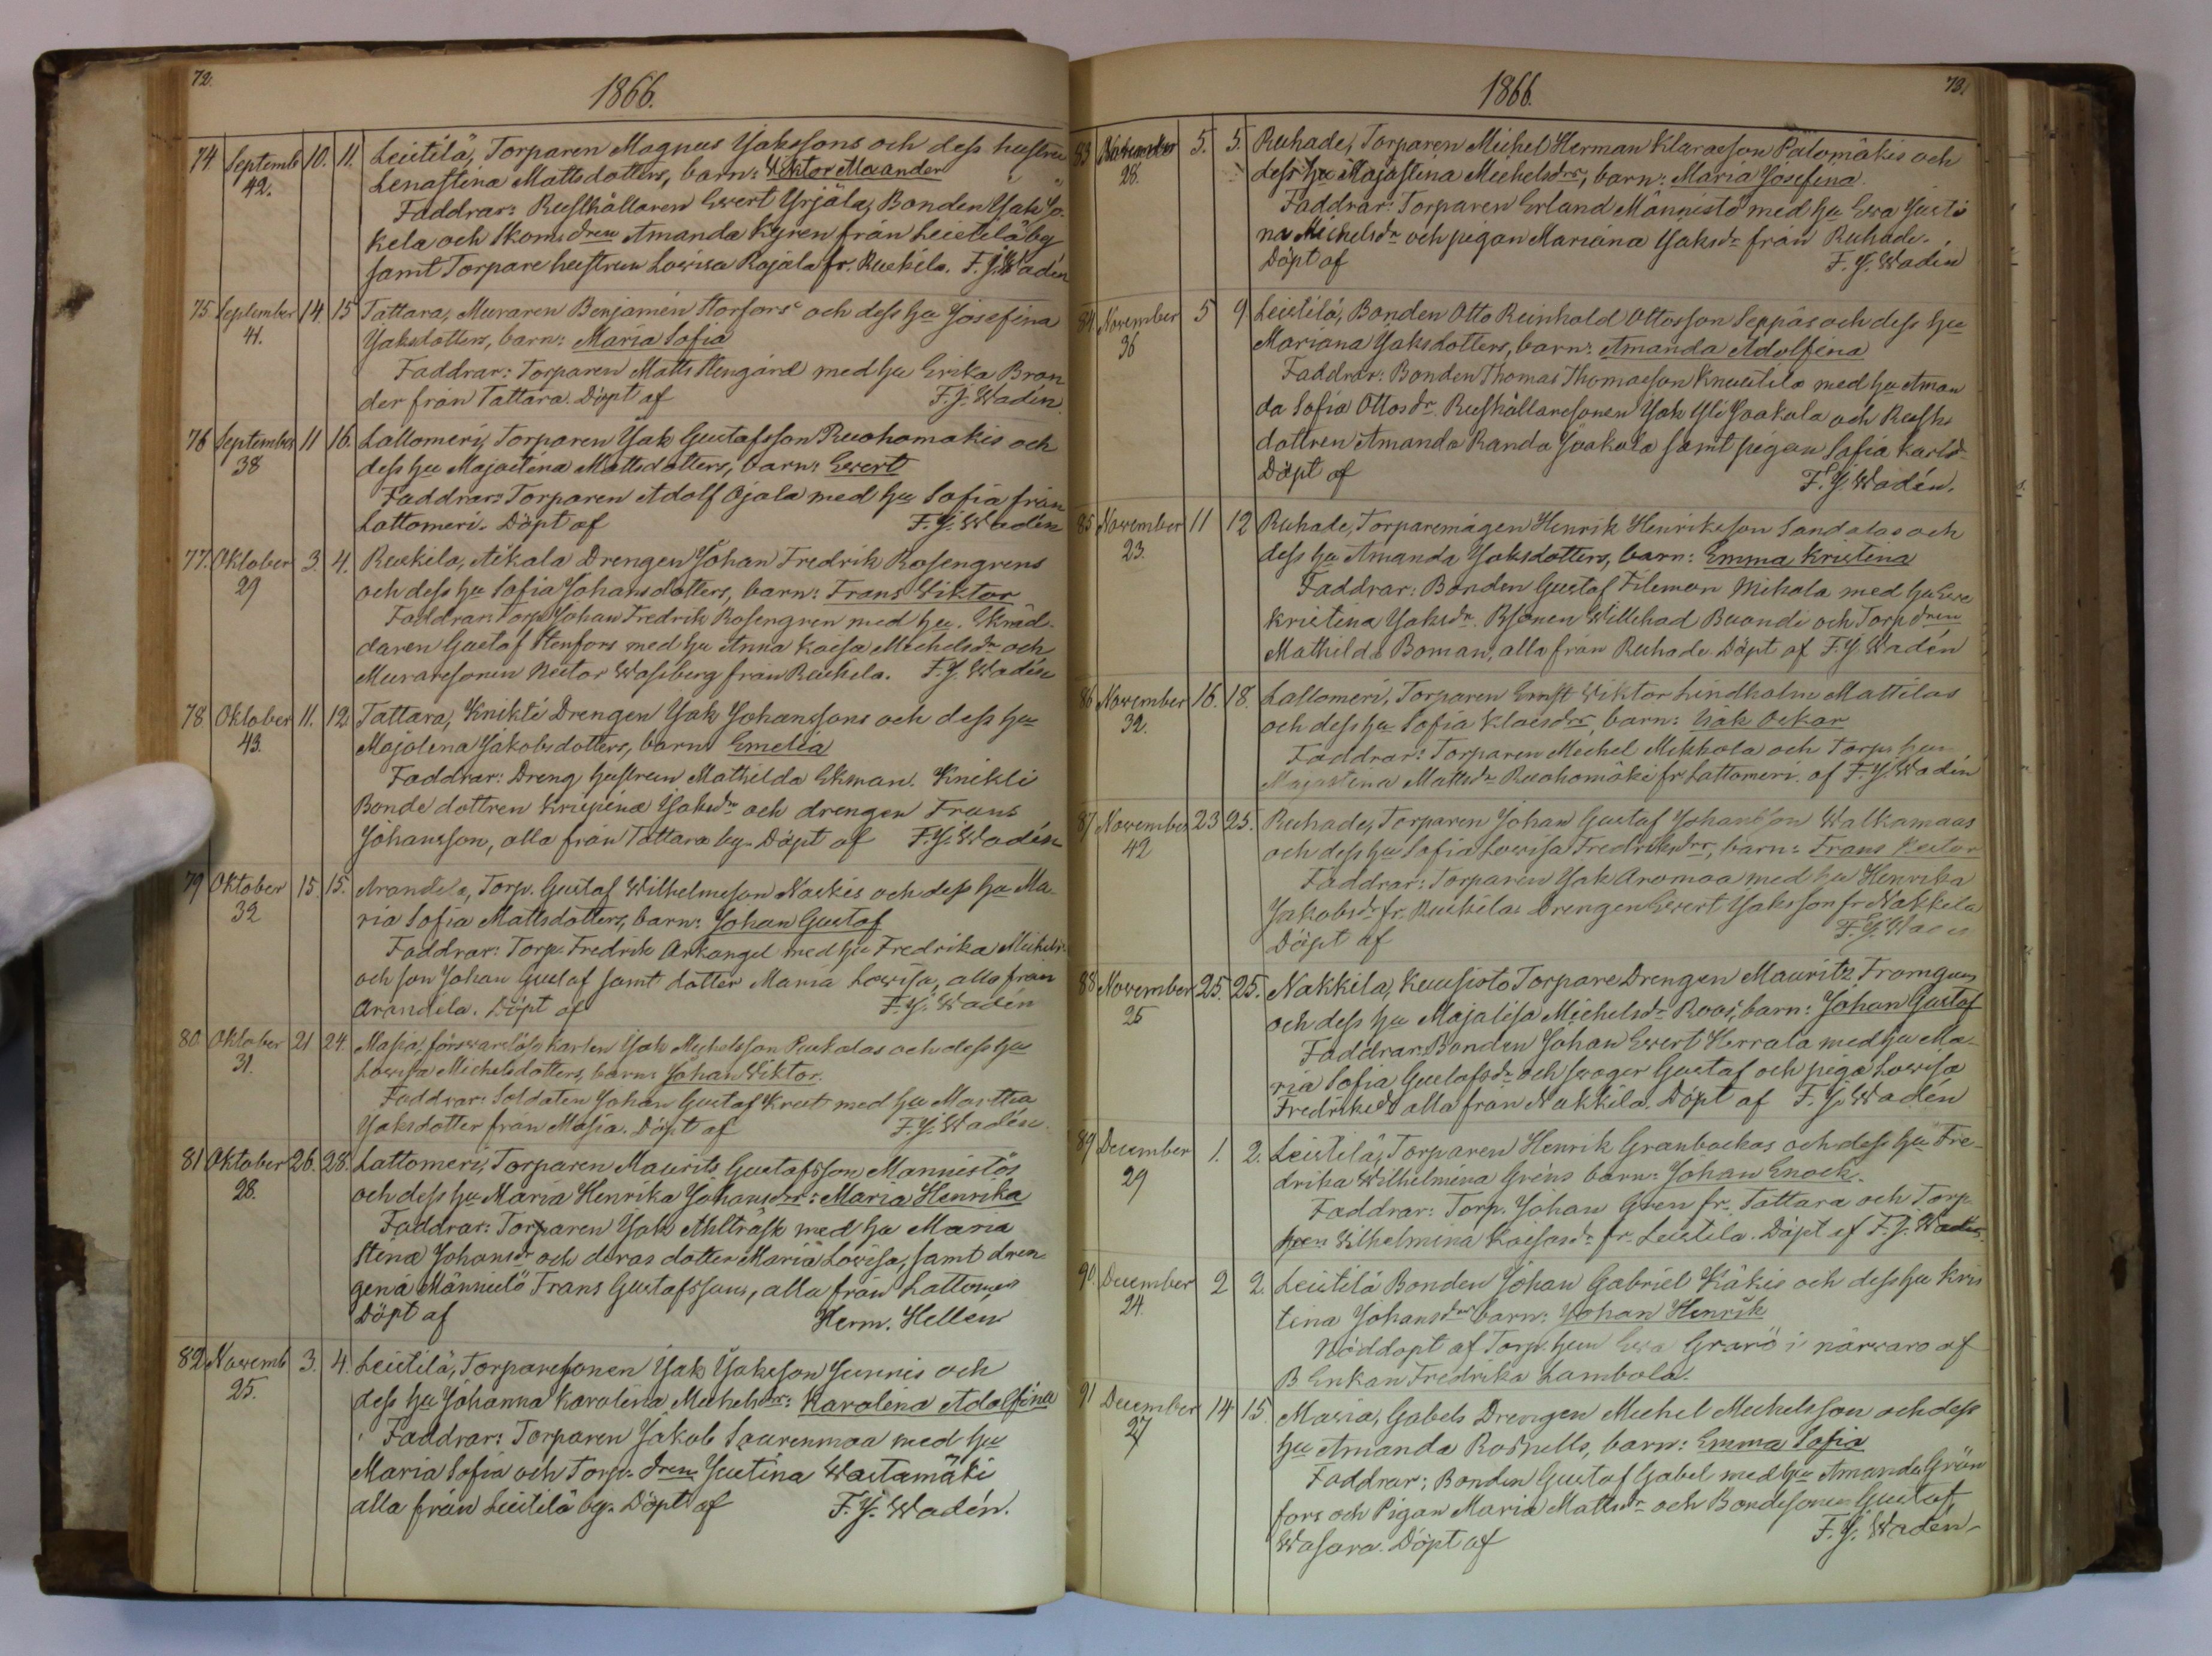 72.
1866.
74 Septemb 10. 11. Leistilä, Torparen Magnus Jakssons och dess hustru
42. Lenastina Mattsdotters, barn: Wiktor Alexander
Faddrar: Rusthållaren Evert Yrjälä, Bonden Jak Jo-
kela och Skom. dren Amanda Kyren från Leistilä by
samt Torpare hustrun Lowisa Rajala fr. Ruskila. F. J. Wadén
75 September 14. 15 Tattara, Muraren Benjamin Storfors och dess hu Josefina
41. Jaksdotters, barn: Maria Sofia
Faddrar: Torparen Matts Stengård med hu Erika Bran
der från Tattara. Döpt af F. J. Wadén.
76 September 11 16. Lattomeri, Torparen Jak Gustafsson Ruohomäkis och
38 dess hu Majastina Mattsdotters, barn: Evert
Faddrar: Torparen Adolf Ojala med hu Sofia från
Lattomeri. Döpt af F. J. Wadén
77. Oktober 3. 4. Ruskila, Aikala Drengen Johan Fredrik Rosengrens
29 och dess hu Sofia Johansdotters, barn: Frans Wiktor
Faddrar: Torp. Johan Fredrik Rosengren med hu. Skräd-
daren Gustaf Stenfors med hu Anna Kaisa Michelsdr och
Muraresonen Nestor Wasberg från Ruskila. F. J. Wadén
78 Oktober 11. 12. Tattara, Knikti Drengen Jak Johanssons och dess hu
43. Majalena Jakobsdotters, barn: Emelia
Faddrar: Dreng hustrun Mathilda Ekman. Knikti
Bonde dottren Krispina Jaksdr och drengen Frans
Johansson, alla från Tattara by. Döpt af F. J. Wadén
79 Oktober 15 15. Arandila, Torp. Gustaf Wilhelmsson Naskis och dess hu Ma-
32 ria Sofia Mattsdotters, barn: Johan Gustaf
Faddrar: Torp. Fredrik Arkangel med hu Fredrika Michelsdr
och son Johan Gustaf samt dotter Maria Lowisa, alla från
Arandila. Döpt af F. J. Wadén
80. Oktober 21 24. Masia, förswarslösa karlen Jak Michelsson Puskalas och dess hu
31. Lowisa Michelsdotters, barn: Johan Wiktor.
Faddrar: Soldaten Johan Gustaf Krut med hu Martha
Jaksdotter från Masia. Döpt af F. J. Wadén
81 Oktober 26. 28. Lattomeri, Torparen Maurits Gustafsson Mannistös
28. och dess hu Maria Henrika Johansdrs: Maria Henrika
Faddrar: Torparen Jak Ahlträsk med hu Maria
Stina Johansdr och deras dotter Maria Lowisa, samt dren-
gen å Männistö Frans Gustafsson, alla från Lattomeri
Döpt af Herm. Hellen
82 Novemb 3. 4. Leistilä, Torparesonen Jak Jaksson Junnis och
25. dess hu Johanna Karolina Michelsdrs: Karolina Adolfina
Faddrar: Torparen Jakob Saarenmaa med hu
Maria Sofia och Torp. dren Justina Wastamäki
alla från Leistilä by. Döpt af F. J. Wadén.
73.
1866.
83 November 5. 5. Ruhade, Torparen Michel Herman Klaraeson Palomäkis och
28. dess hu Majastina Michelsdrs, barn: Maria Josefina
Faddrar: Torparen Erland Männistö med hu Ewa Justi
na Michelsdr och pigan Mariana Jaksdr från Ruhade.
Döpt af F. J. Wadén
84 November 5 9 Leistilä, Bonden Otto Reinhold Ottosson Seppäs och dess hu
36 Mariana Jaksdotters, barn: Amanda Adolfina
Faddrar: Bonden Thomas Thomasson Knuutila med hu Aman
da Sofia Ottosdr. Rusthållaresonen Jak Yli Jaakala och Rusth.
dottren Amanda Randa Jaakala samt pigan Sofia Karlsdr
Döpt af F. J. Wadén.
85 November 11 12 Ruhade, Torparemågen Henrik Henriksson Sandalas och
23. dess hu Amanda Jaksdotters, barn: Emma Kristina
Faddrar: Bonden Gustaf Filemon Mikola med hu Ewa
Kristina Jaksdr. Rsonen Willehad Buondi och Torp dren
Mathilda Boman, alla från Ruhade. Döpt af F. J. Wadén
86 November 16. 18. Lattomeri, Torparen Ernst Wiktor Lindholm Mattilas
32. och dess hu Sofia Klaesdrs, barn: Isak Oskar
Faddrar: Torparen Michel Mikkola och Torps hun
Majastina Mattsdr Ruohomäki fr Lattomeri. af F. J. Wadén
87 November 23 25. Ruhade, Torparen Johan Gustaf Johansson Walkamaas
42 och dess hu Sofia Lowisa Fredriksdrs, barn: Frans Nestor
Faddrar: Torparen Jak Aromaa med hu Henrika
Jakobsdr fr. Ruskila. Drengen Evert Jaksson fr Nakkila
Döpt af F. J. Wadén
88 November 25. 25. Nakkila, Kuusisto Torpare Drengen Mauritz Framguns
25 och dess hu Majalisa Michelsdr Roos, barn: Johan Gustaf
Faddrar: Bonden Johan Evert Herrala med hu Ma-
ria Sofia Gustafsdr och swager Gustaf och piga Lowisa
Fredriksdr alla från Nakkila. Döpt af F. J. Wadén
89 December 1. 2. Leistilä, Torparen Henrik Granbackas och dess hu Fre-
29 drika Wilhelmina Gréns barn: Johan Enock.
Faddrar: Torp. Johan Gren fr. Tattara och Torp.
hun Wilhelmina Kaisasdr fr. Leistila. Döpt af F. J. Wadén.
90. December 2 2. Leistilä Bonden Johan Gabriel Käkis och dess hu Kris
24. tina Johansdrs barn: Johan Henrik
Nöddöpt af Torp. hun Ewa Grarö i närvaro af
B Enkan Fredrika Lambola.
91 December 14 15. Masia, Gabels Drengen Michel Michelsson och dess
27 hu Amanda Rosnells, barn: Emma Sofia
Faddrar: Bonden Gustaf Gabel med hu Amanda Grön
fors och Pigan Maria Mattsdr och Bondesonen Gustaf
Wasara. Döpt af F. J. Wadén.